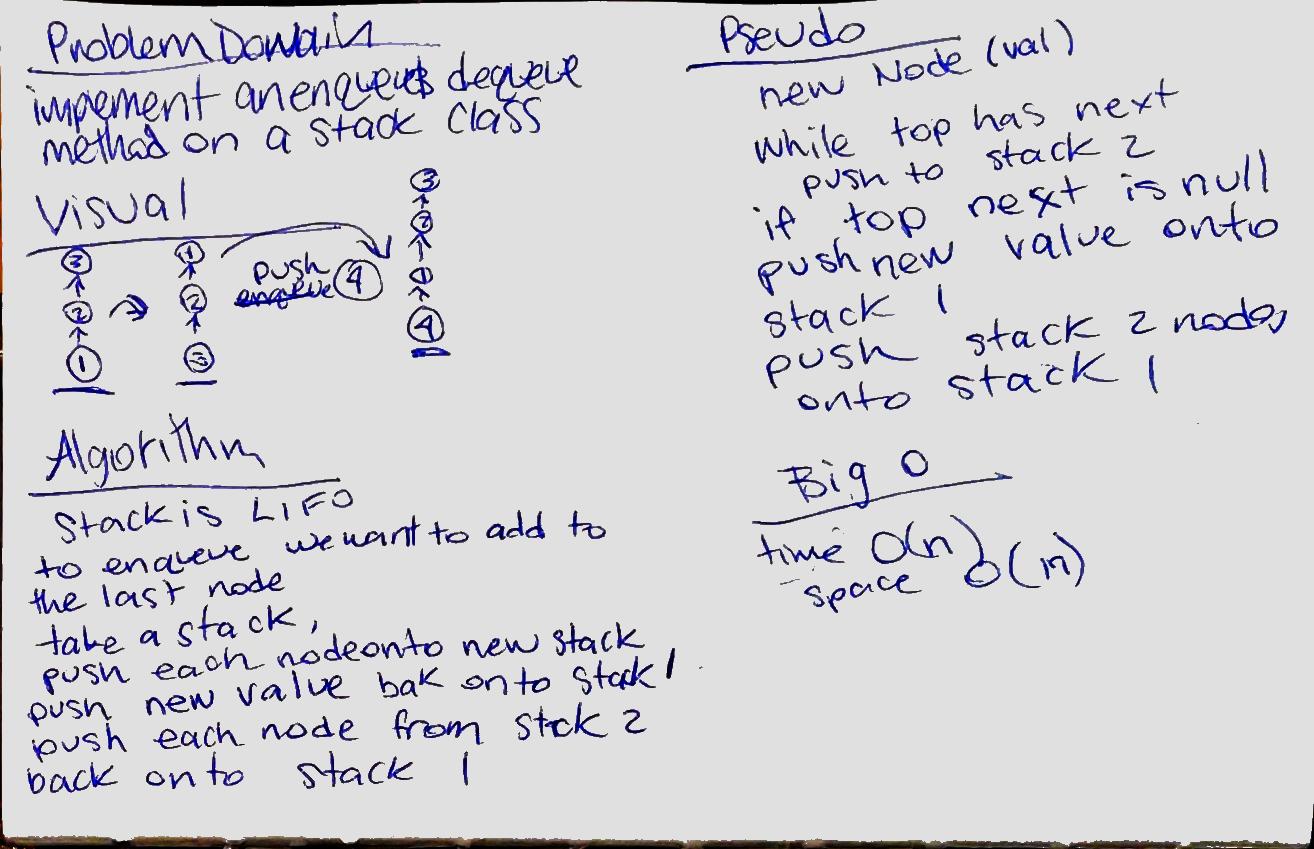 Problem Domain
impement an enqueue & dequeue
method on a stack class
Visual
3
2
1
1
2
3
push
enqueue
4
3
2
1
4
Algorithm
Stack is LIFO
to enqueue we want to add to
the last node
take a stack,
push each node onto new stack
push new value bak onto stack 1
push each node from stck 2
back onto stack 1
Pseudo
new Node (val)
while top has next
push to stack 2
if top next is null
push new value onto
stack 1
push stack 2 nodes
onto stack 1
Big O
time O(n)
space O(n)